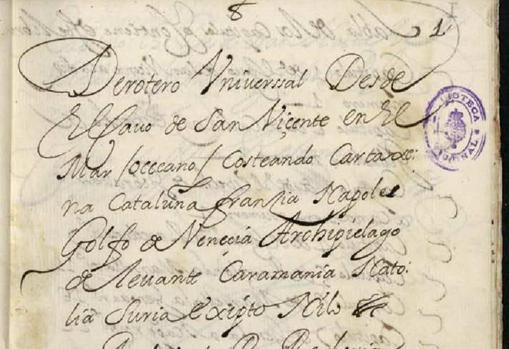 8
1
Derotero Vniverssal Desde
El Cavo de San Vicente en El
Mar / occeano / Costeando Cartaxe:
na Cataluña franzia Napoles
Golfo de Venecia Archipielago
de levante Caramania Nato:
lia Suria Exipto Nilo